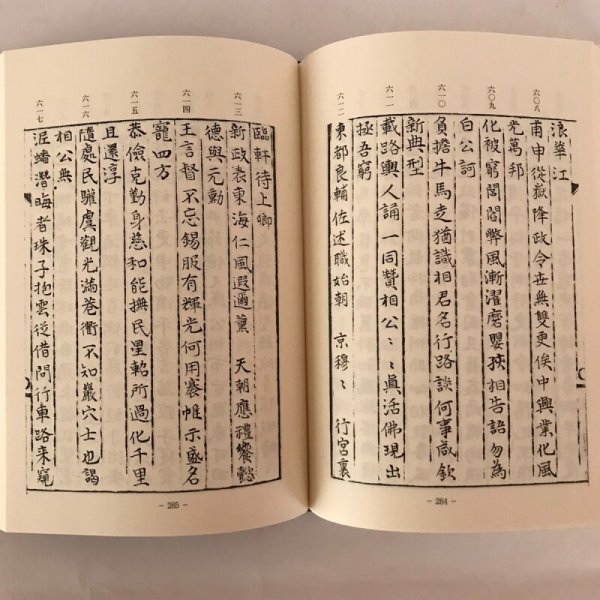 六〇八
六〇九
六一〇
六一一
六一二
浪華江
甫申從嶽降政令世無雙更俟中興業化風
光萬邦
化被窮閻閻弊風漸濯磨嬰孩相告語勿為
白公訶
負擔牛馬走猶識相君名行路談何事咸欽
新典型
載路輿人誦一同贊相公〻〻真活佛現出
拯吾窮
東都良輔佐述職始朝 京穆〻 行宮裏
- 284 -
六一三
六一四
六一五
六一六
六一七
臨軒待上卿
新政表東海仁風遐邇薰 天朝應禮饗懿
德與元勳
王言督不忘錫服有輝光何用褰帷示盛名
寵四方
恭儉克勤身慈和能撫民星軺所過化千里
且還淳
隨處民驩虞觀光滿巷衢不知巖穴士也謁
相公無
泥蟠潛晦者珠子抱雲從借問行車路来窺
- 285 -